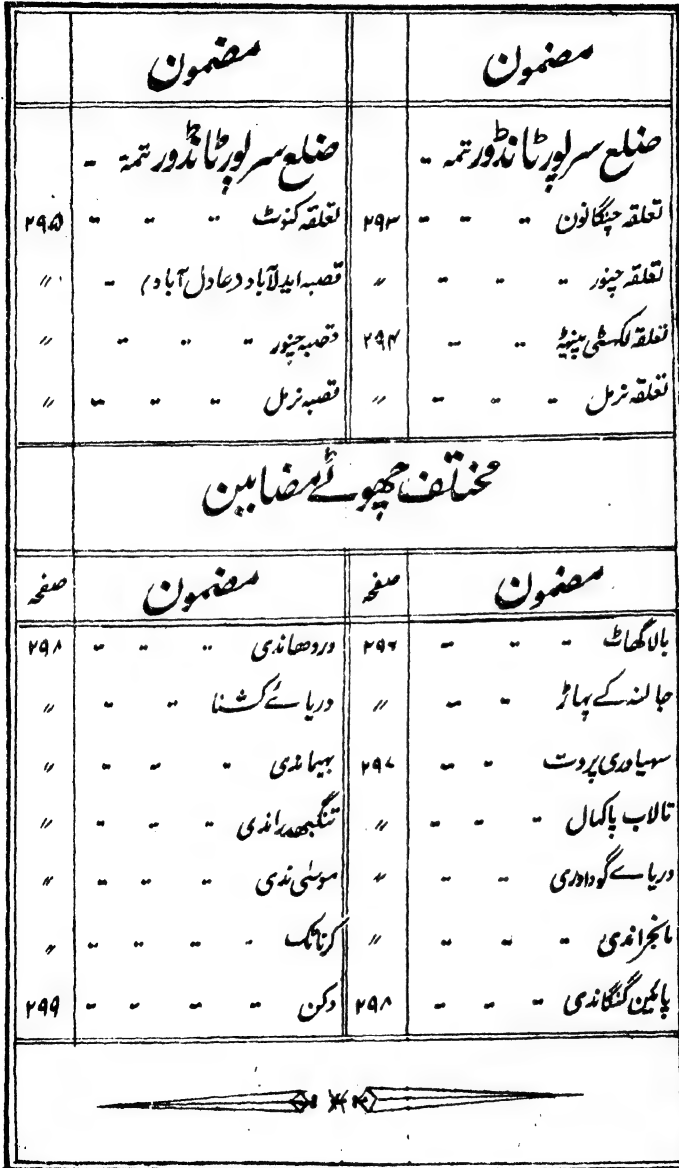 مضمون مضمون
ضلع سرپور ٹانڈور تتمہ ضلع سرپور ٹانڈور تتمہ
تعلقہ چنگانون ۲۹۳ تعلقہ کنوٹ ۲۹۵
تعلقہ چنور 〃 قصبہ ایدلآباد (عادل آباد) 〃
تعلقہ لکشٹی پیٹھ ۲۹۴ قصبہ چنور 〃
تعلقہ نرمل 〃 قصبہ نرمل 〃
مختلف چھوٹے مضامین
مضمون صفحہ مضمون صفحہ
بالاگھاٹ ۲۹۶ وردھاندی ۲۹۸
جالنہ کے پہاڑ 〃 دریائے کشنا 〃
سہیادری پروت ۲۹۷ بھیماندی 〃
تالاب پاکہال 〃 تنگبھدراندی 〃
دریاے گوداوری 〃 موسٰی ندی 〃
مانجراندی 〃 کرناٹک 〃
پائین گنگاندی ۲۹۸ دکن ۲۹۹